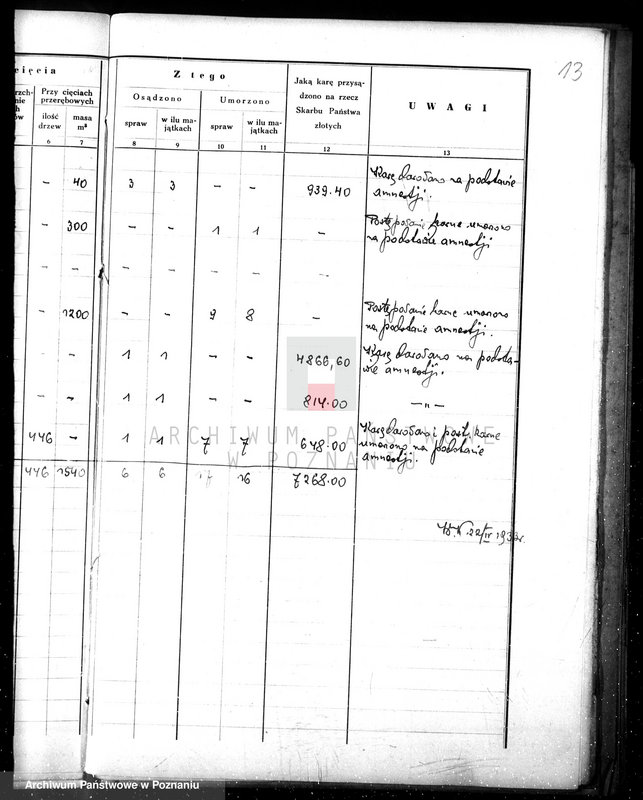 13
ięcia
Z tego
Jaką karę przysą-
dzono na rzecz
Skarbu Państwa
złotych
UWAGI
Przy cięciach
przerębowych
Osądzono
Umorzono
ilość
drzew
masa
m³
spraw
w ilu ma-
jątkach
spraw
w ilu ma-
jątkach
6 7 8 9 10 11 12 13
– 40 3 3 – – 939.40 Karę darowano na podstawie
amnestji.
– 300 – – 1 1 – Postępowanie karne umorzono
na podstawie amnestji
– – – – – – –
– 1200 – – 9 8 – Postępowanie karne umorzono
na podstawie amnestji.
– – 1 1 – – 4866,60 Karę darowano na podsta-
wie amnestji.
– – 1 1 – – 814.00 –"–
446 – 1 1 7 7 648.00 Karę darowano i post. karne
umorzono na podstawie
amnestji.
446 1540 6 6 17 16 7268.00
22/IV 1933r.
ARCHIWUM PAŃSTWOWE
W POZNANIU
Archiwum Państwowe w Poznaniu